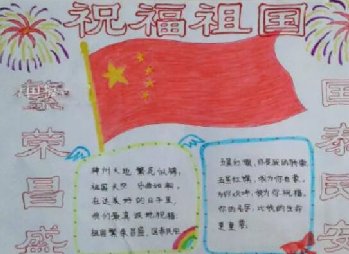 祝福祖国
繁荣昌盛
国泰民安
神州大地 繁花似锦，
祖国天空 乐曲如潮，
在这美好的日子里，
我们最真诚地祝福：
祖国繁荣昌盛，国泰民安
五星红旗，你是我的骄傲
五星红旗，我为你自豪，
为你欢呼，我为你祝福，
你的名字，比我的生命
更重要。